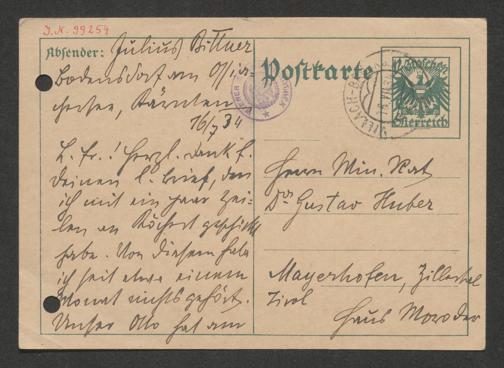 I.N. 99254
Absender: Julius Bittner
Bodensdorf am Ossia-
chersee, Kärnten
16/7 34
L. Fr.! Herzl. Dank f.
Deinen l. Brief, den
ich mit ein paar Zei-
len an Köchert geschickt
habe. Von diesem habe
ich seit etwa einem
Monat nichts gehört.
Unser Otto hat am
Postkarte
12 Groschen
Österreich
VILLACH
Herrn Min. Rat
Dr. Gustav Huber
Mayerhofen, Zillertal
Tirol
Haus Moroder